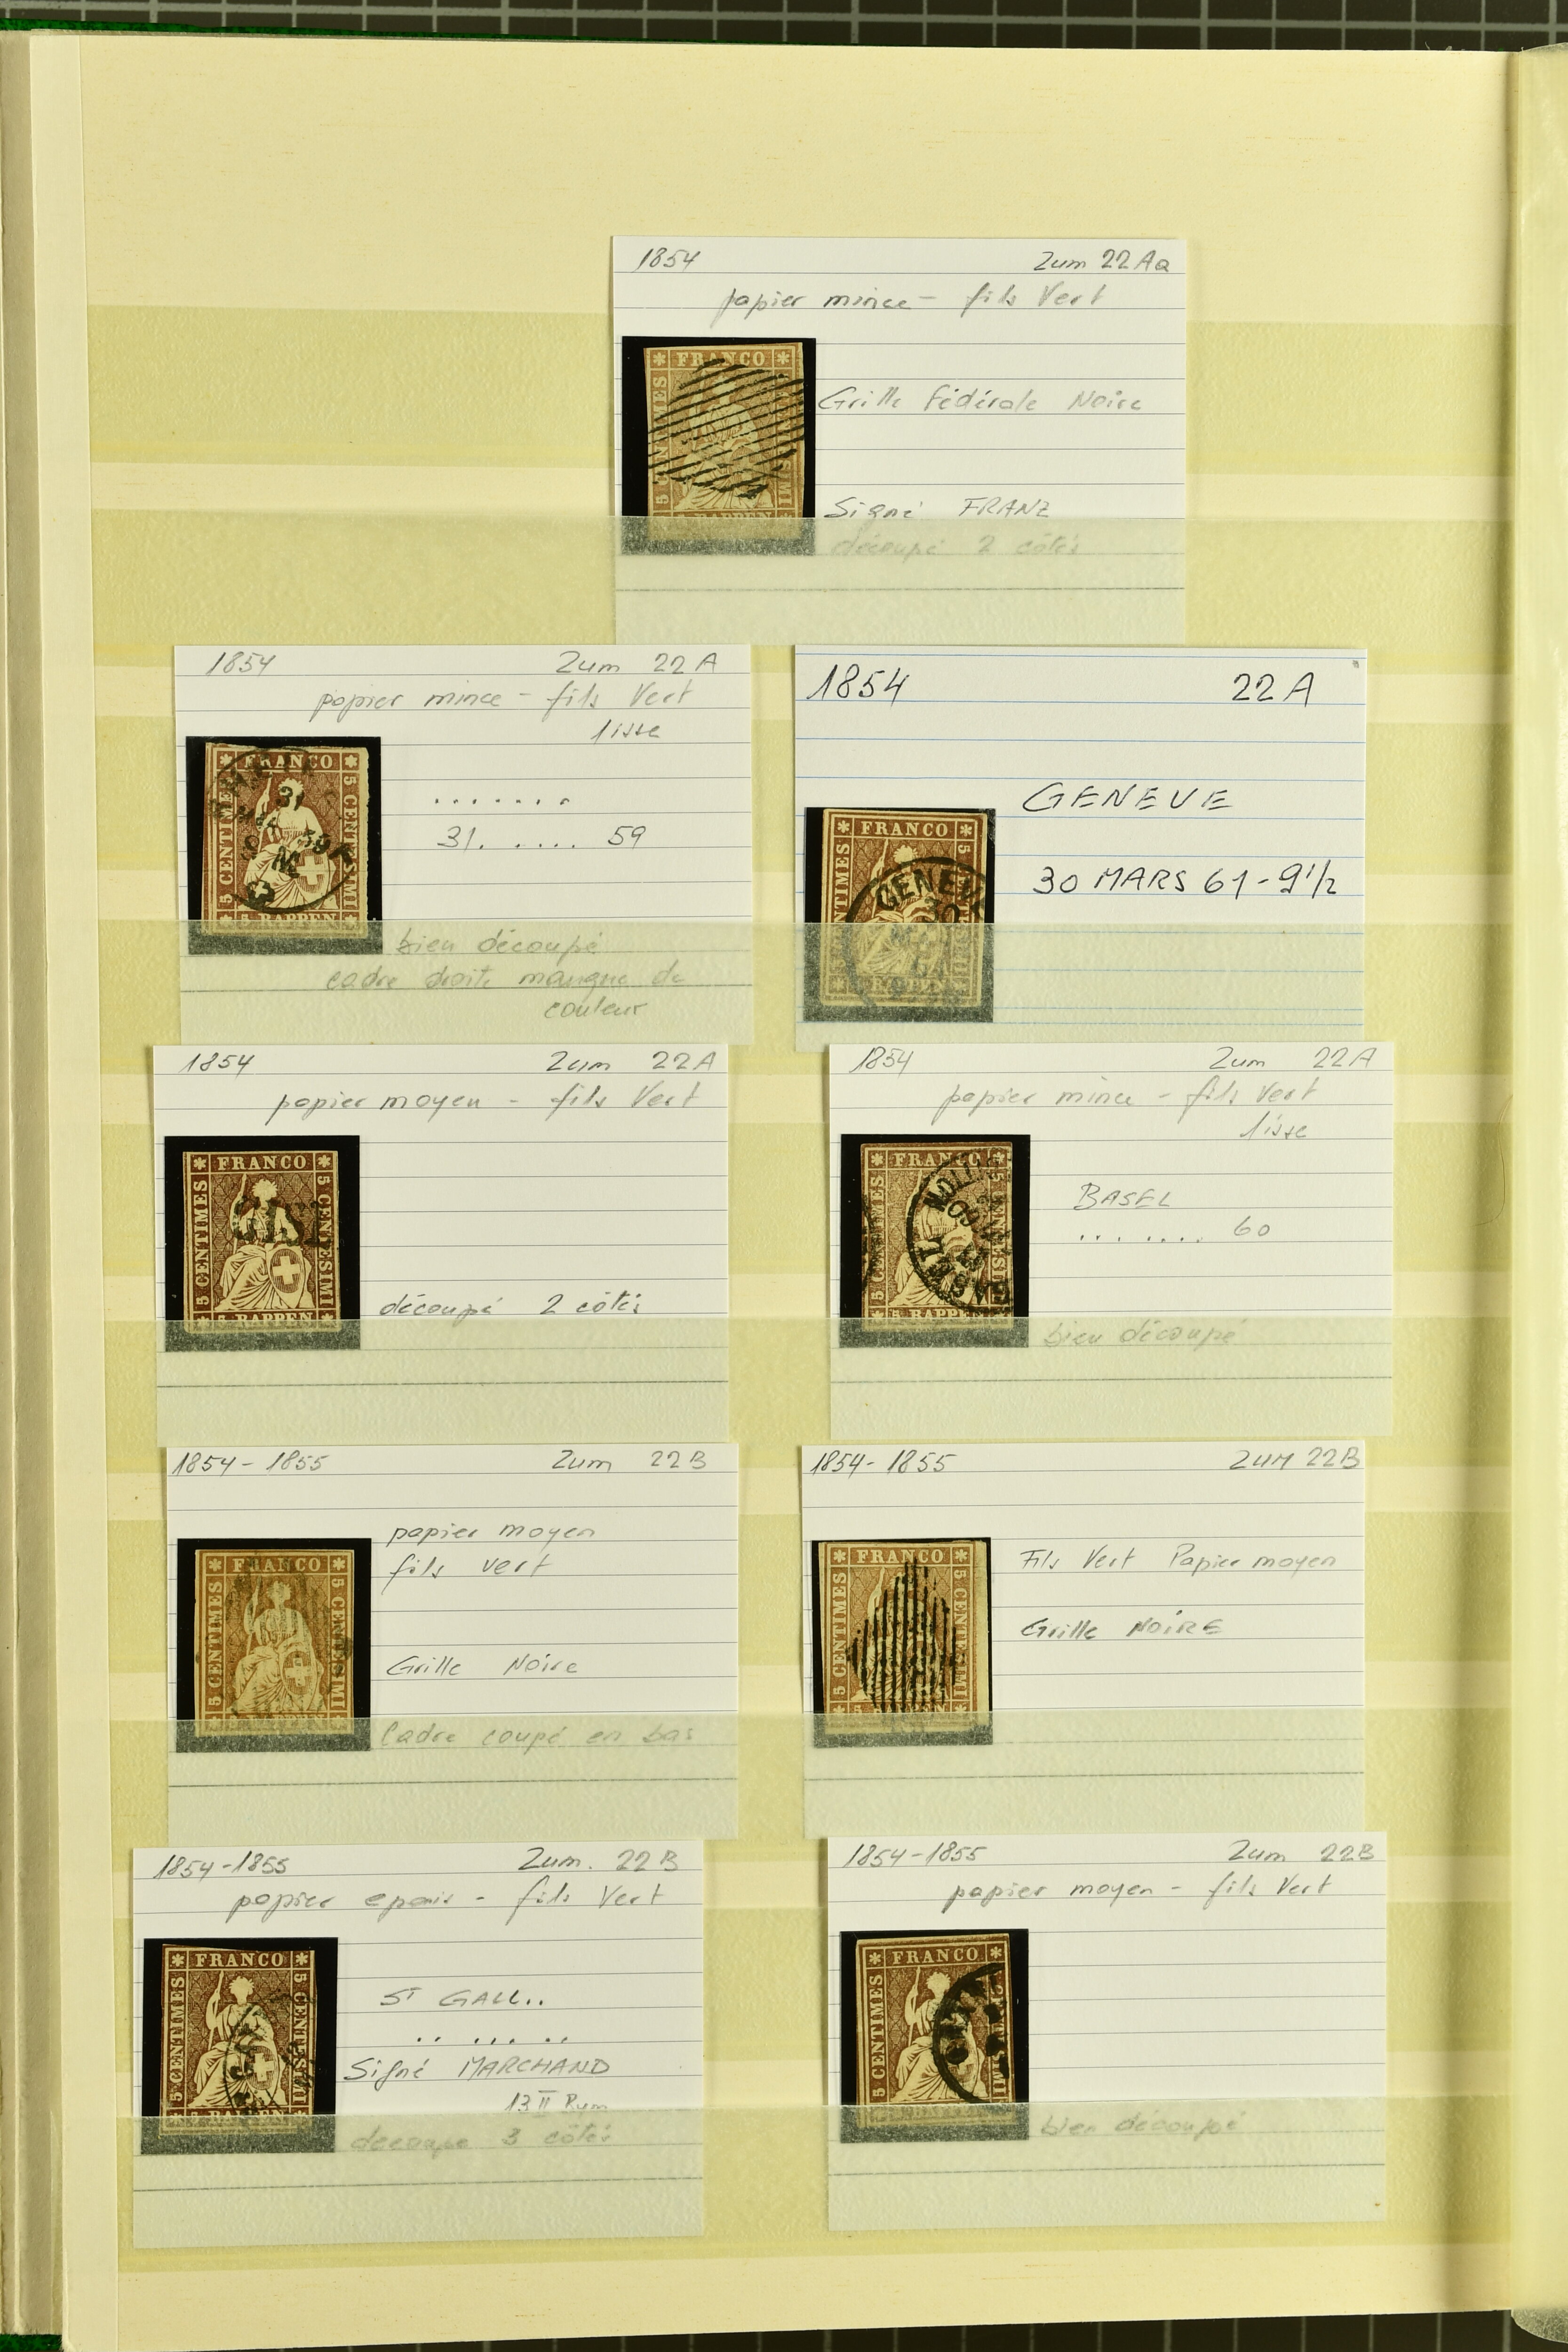 1854 Zum 22 Aa
papier mince - fils Vert
FRANCO
5 CENTIMES
RAPPEN
Grille Fédérale Noire
Signé FRANZ
découpé 2 côtés
1854 Zum 22 A
papier mince - fils Vert
lisse
FRANCO
5 CENTIMES
5 CENTESIMI
5 RAPPEN
. . . . . . .
31. . . . . . 59
bien découpé
cadre droite manque de
couleur
1854 22 A
FRANCO
GENEVE
30 MARS 61 - 9 1/2
1854 Zum 22 A
papier moyen - fils Vert
FRANCO
5 CENTIMES
5 CENTESIMI
5 RAPPEN
découpé 2 côtés
1854 Zum 22 A
papier mince - fils Vert
lisse
FRANCO
5 RAPPEN
BASEL
. . . . . . . 60
bien découpé
1854 - 1855 Zum 22B
papier moyen
fils vert
FRANCO
5 CENTIMES
5 CENTESIMI
Grille Noire
Cadre coupé en bas
1854 - 1855 ZUM 22B
FRANCO
5 CENTIMES
Fils Vert Papier moyen
Grille NOIRE
1854 - 1855 Zum. 22 B
papier epais - fils Vert
FRANCO
5 CENTIMES
5 CENTESIMI
ST GALL..
.. ... ..
Signé MARCHAND
13 II Rym
decoupe 3 côtés
1854 - 1855 Zum 22B
papier moyen - fils Vert
FRANCO
5 CENTIMES
bien découpé